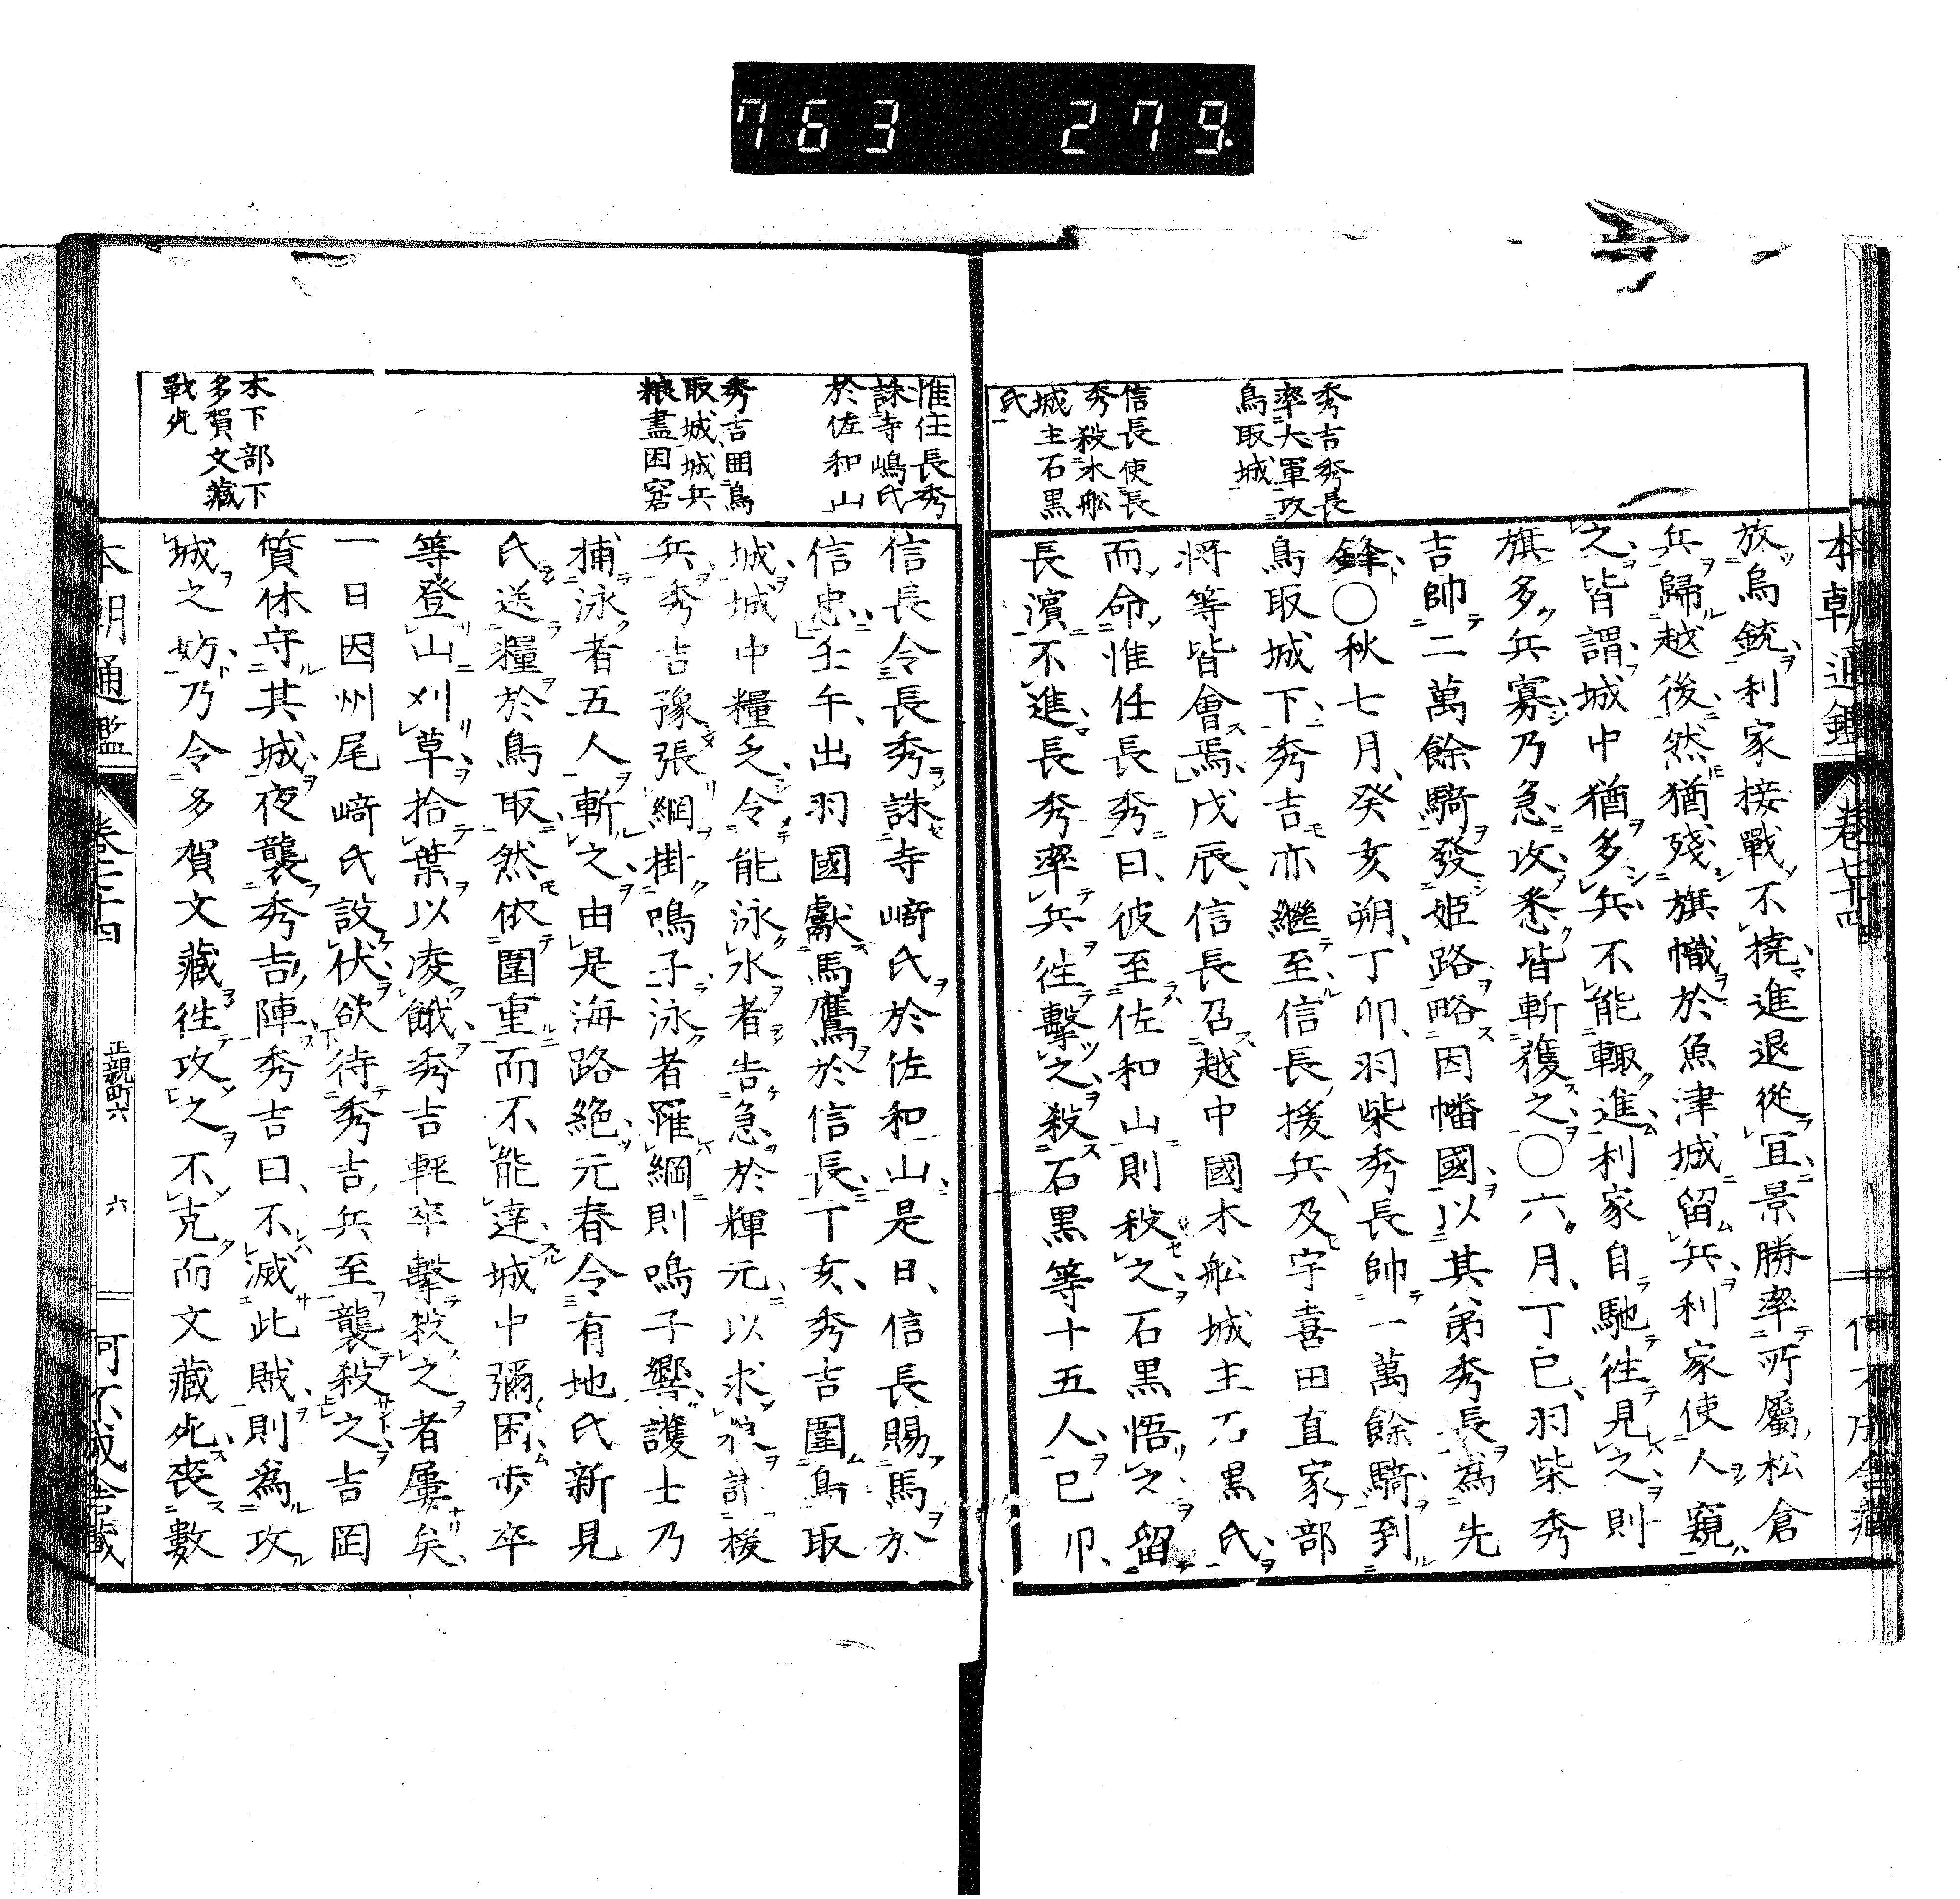 763 279.
本朝通鑑 卷七十四
秀吉秀長
率大軍攻
鳥取城
信長使長
秀殺木舩
城主石黒
氏
放烏銃利家接戰不撓進退從宜景勝率所屬松倉
兵歸越後然猶殘旗幟於魚津城留兵利家使人窺
之皆謂城中猶多兵不能輙進利家自馳往見之則
旗多兵寡乃急攻悉皆斬獲之〇六月丁巳羽柴秀
吉帥二萬餘騎發姫路略因幡國以其弟秀長為先
鋒〇秋七月癸亥朔丁卯羽柴秀長帥一萬餘騎到
鳥取城下秀吉亦繼至信長援兵及宇喜田直家部
将等皆會焉戊辰信長召越中國木舩城主石黒氏
而命惟任長秀曰彼至佐和山則殺之石黒悟之留
長濱不進長秀率兵往擊之殺石黒等十五人已卯
惟任長秀
誅寺嶋氏
於佐和山
秀吉囲鳥
取城城兵
粮盡困窘
木下部下
多賀文藏
戰死
信長令長秀誅寺﨑氏於佐和山是日信長賜馬於
信忠壬午出羽國獻馬鷹於信長丁亥秀吉圍鳥取
城城中糧乏令能泳水者告急於輝元以求糧計援
兵秀吉豫張網掛鳴子泳者羅網則鳴子響護士乃
捕泳者五人斬之由是海路絶元春令有地氏新見
氏送糧於鳥取然依圍重而不能達城中彌困歩卒
等登山刈草拾葉以凌餓秀吉輕卒擊殺之者屢矣
一日因州尾﨑氏設伏欲待秀吉兵至襲殺之吉岡
質休守其城夜襲秀吉陣秀吉曰不滅此賊則爲攻
城之妨乃令多賀文藏往攻之不克而文藏死喪數
本朝通鑑 卷七十四 正親町六 六